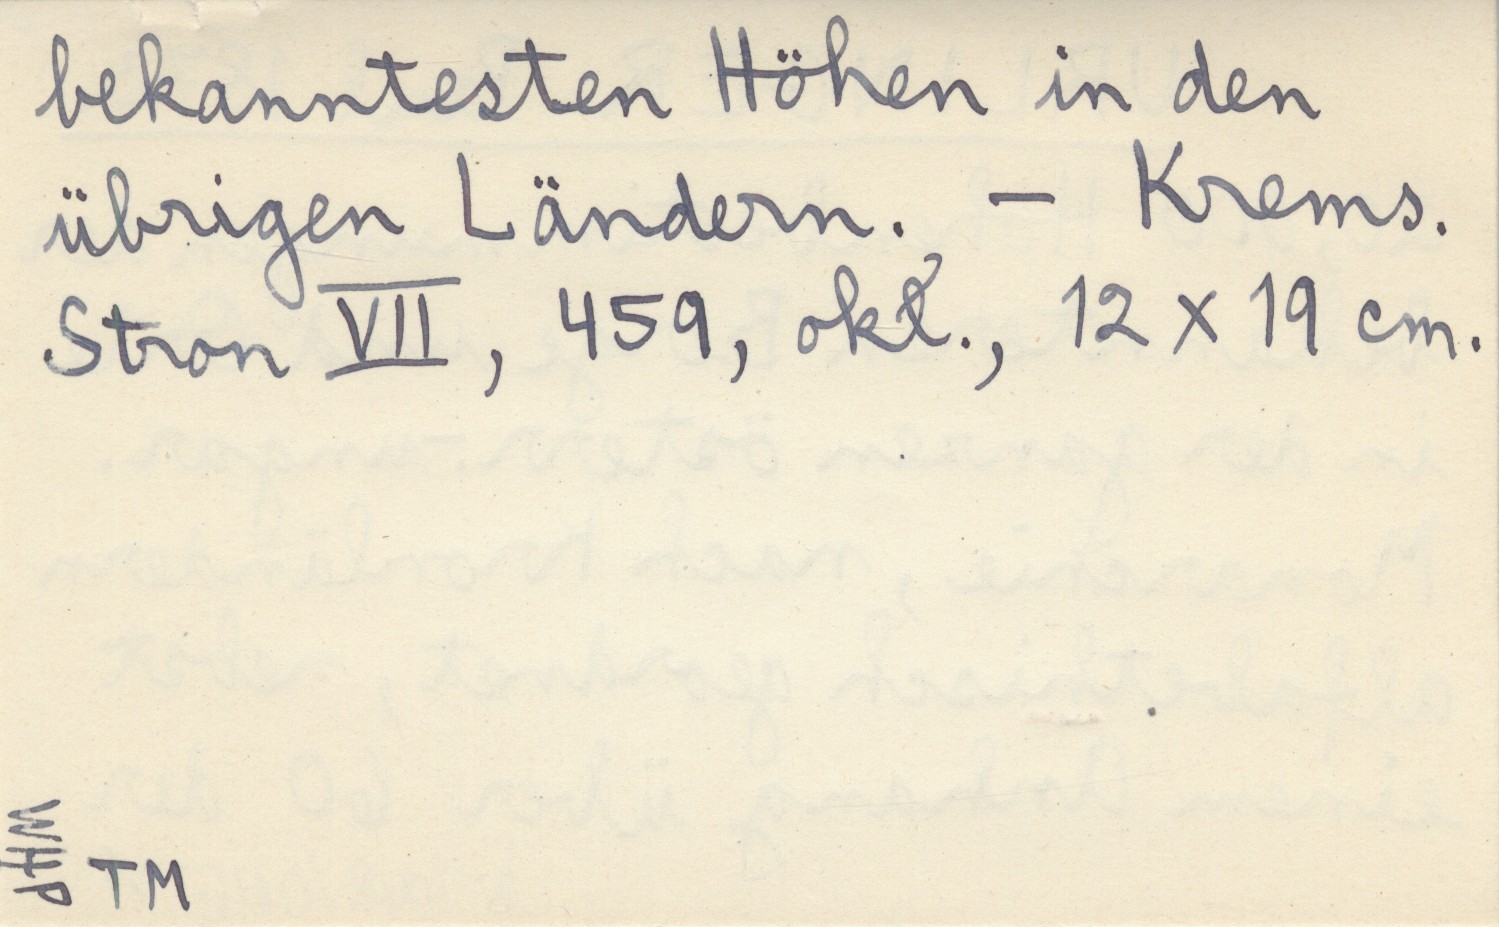 bekanntesten Höhen in den
übrigen Ländern. – Krems.
Stron VII, 459, okł., 12 x 19 cm.
WHP
TM